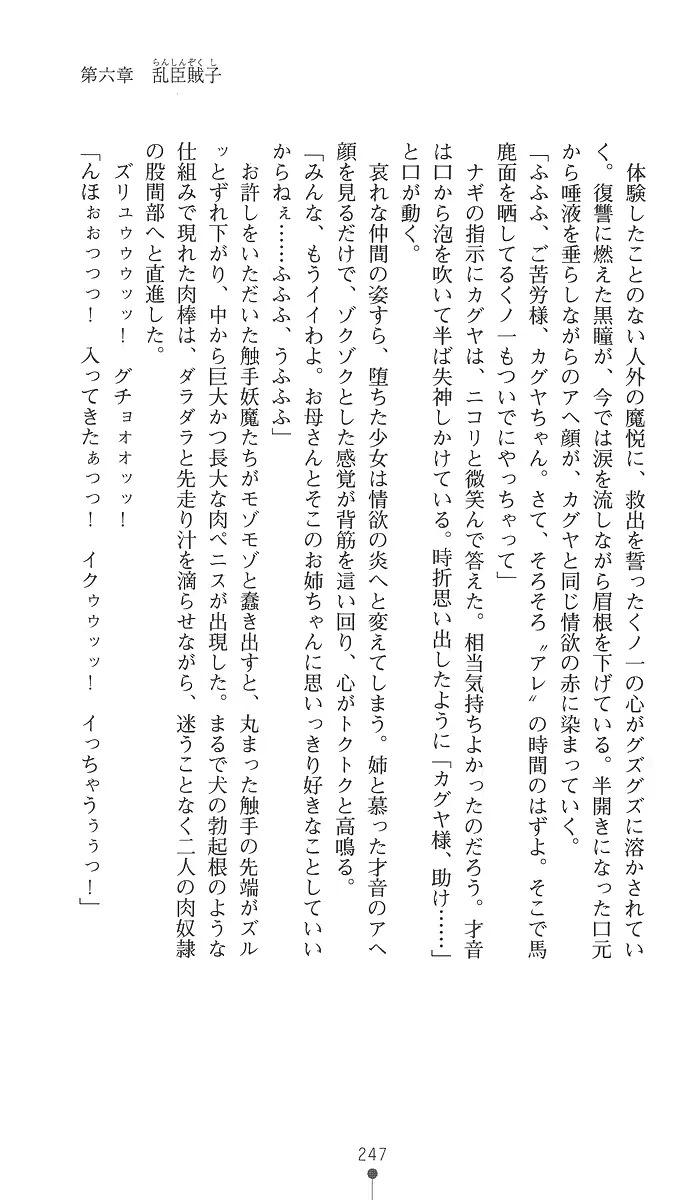 第六章　乱臣賊子
らんしんぞくし
　体験したことのない人外の魔悦に、救出を誓ったくノ一の心がグズグズに溶かされてい
く。復讐に燃えた黒瞳が、今では涙を流しながら眉根を下げている。半開きになった口元
から唾液を垂らしながらのアヘ顔が、カグヤと同じ情欲の赤に染まっていく。
「ふふふ、ご苦労様、カグヤちゃん。さて、そろそろ〝アレ〟の時間のはずよ。そこで馬
鹿面を晒してるくノ一もついでにやっちゃって」
　ナギの指示にカグヤは、ニコリと微笑んで答えた。相当気持ちよかったのだろう。才音
は口から泡を吹いて半ば失神しかけている。時折思い出したように「カグヤ様、助け……」
と口が動く。
　哀れな仲間の姿すら、堕ちた少女は情欲の炎へと変えてしまう。姉と慕った才音のアヘ
顔を見るだけで、ゾクゾクとした感覚が背筋を這い回り、心がトクトクと高鳴る。
「みんな、もうイイわよ。お母さんとそこのお姉ちゃんに思いっきり好きなことしていい
からねぇ……ふふふ、うふふふ」
　お許しをいただいた触手妖魔たちがモゾモゾと蠢き出すと、丸まった触手の先端がズル
ッとずれ下がり、中から巨大かつ長大な肉ペニスが出現した。まるで犬の勃起根のような
仕組みで現れた肉棒は、ダラダラと先走り汁を滴らせながら、迷うことなく二人の肉奴隷
の股間部へと直進した。
　ズリュゥゥゥッッ！　グチョォォッッ！
「んほぉぉっっっ！　入ってきたぁっっ！　イクゥゥッッ！　イっちゃうぅぅっ！」
247